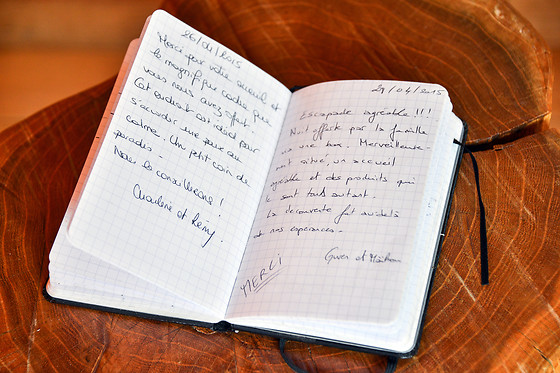 26/04/2015
Merci pour votre accueil et
le magnifique cadre que
vous nous avez offert.
Cet endroit est idéal pour
s'accorder une pause au
calme. Un petit coin de
paradis.
Nous le conseillerons !
Charlène et Rémy.
29/04/2015
Escapade agréable !!!
Nuit offerte par la famille
via une box. Merveilleuse-
ment situé, un accueil
agréable et des produits qui
le sont tout autant.
La découverte fut au delà
de nos espérances.
Gwen et
MERCI